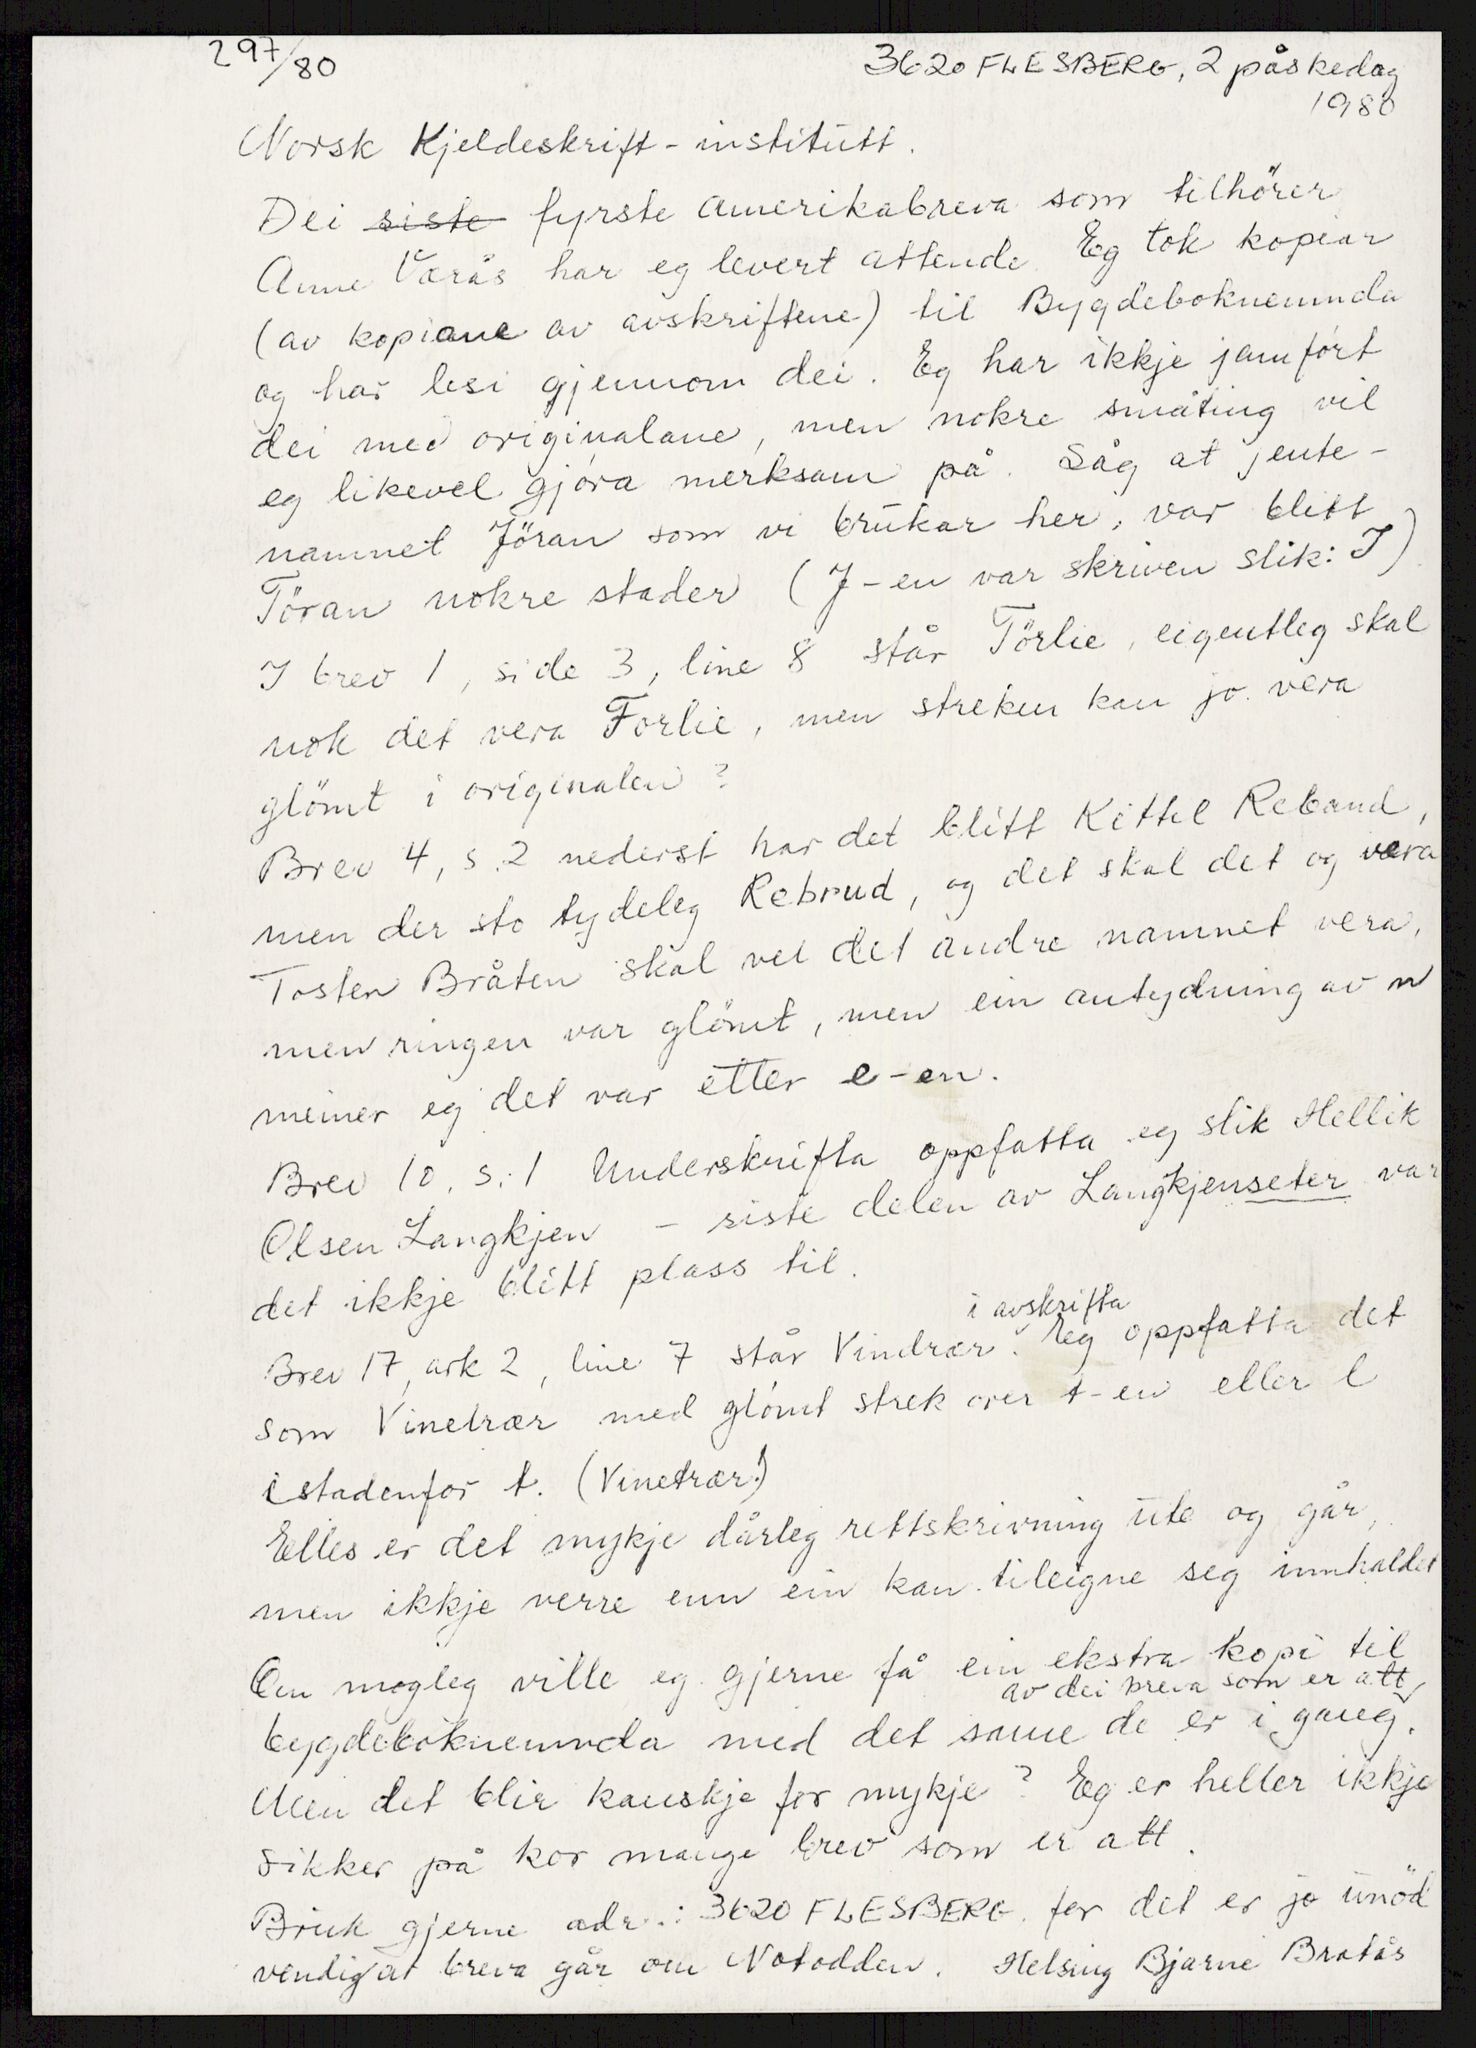 297/80
3620 FLESBERG, 2 påskedag
1980
Norsk Kjeldeskrift-institutt.
Dei siste fyrste amerikabreva som tilhörer
Anne Værås har eg levert attende. Eg tok kopiar
(av kopiane av avskriftene) til Bygdeboknemnda
og har lesi gjennom dei. Eg har ikkje jamført
dei med originalane, men nokre småting vil
eg likevel gjöra merksam på. Såg at jente-
namnet Jöran som vi brukar her, var blitt
Töran nokre stader (J-en var skriven slik: J)
I brev 1, side 3, line 8 står Törlie, eigentleg skal
nok det vera Forlie, men streken kan jo vera
glömt i originalen?
Brev 4, s. 2 nederst har det blitt Kittel Reband,
men der sto tydeleg Rebrud, og det skal det og vera
Tosten Bråten skal vel det andre namnet vera,
men ringen var glömt, men ein antydning av n
meiner eg det var etter e-en.
Brev 10, s. 1 Underskrifta oppfatta eg slik Hellik
Olsen Langkjen – siste delen av Langkjenseter var
det ikkje blitt plass til.
i avskrifta
Brev 17, ark 2, line 7 står Vindrær. Eg oppfatta det
som Vinetrær med glömt strek over t-en eller l
istadenfor t. (Vinetrær!)
Elles er det mykje dårleg rettskrivning ute og går,
men ikkje verre enn ein kan tileigne seg innhaldet
Om mogleg ville eg gjerne få ein ekstra kopi til
av dei breva som er att
bygdeboknemnda med det same de er i gang.
Men det blir kanskje for mykje? Eg er heller ikkje
sikker på kor mange brev som er att.
Bruk gjerne adr.: 3620 FLESBERG. for det er jo unöd
vendig at breva går om Notodden. Helsing Bjarne Bratås